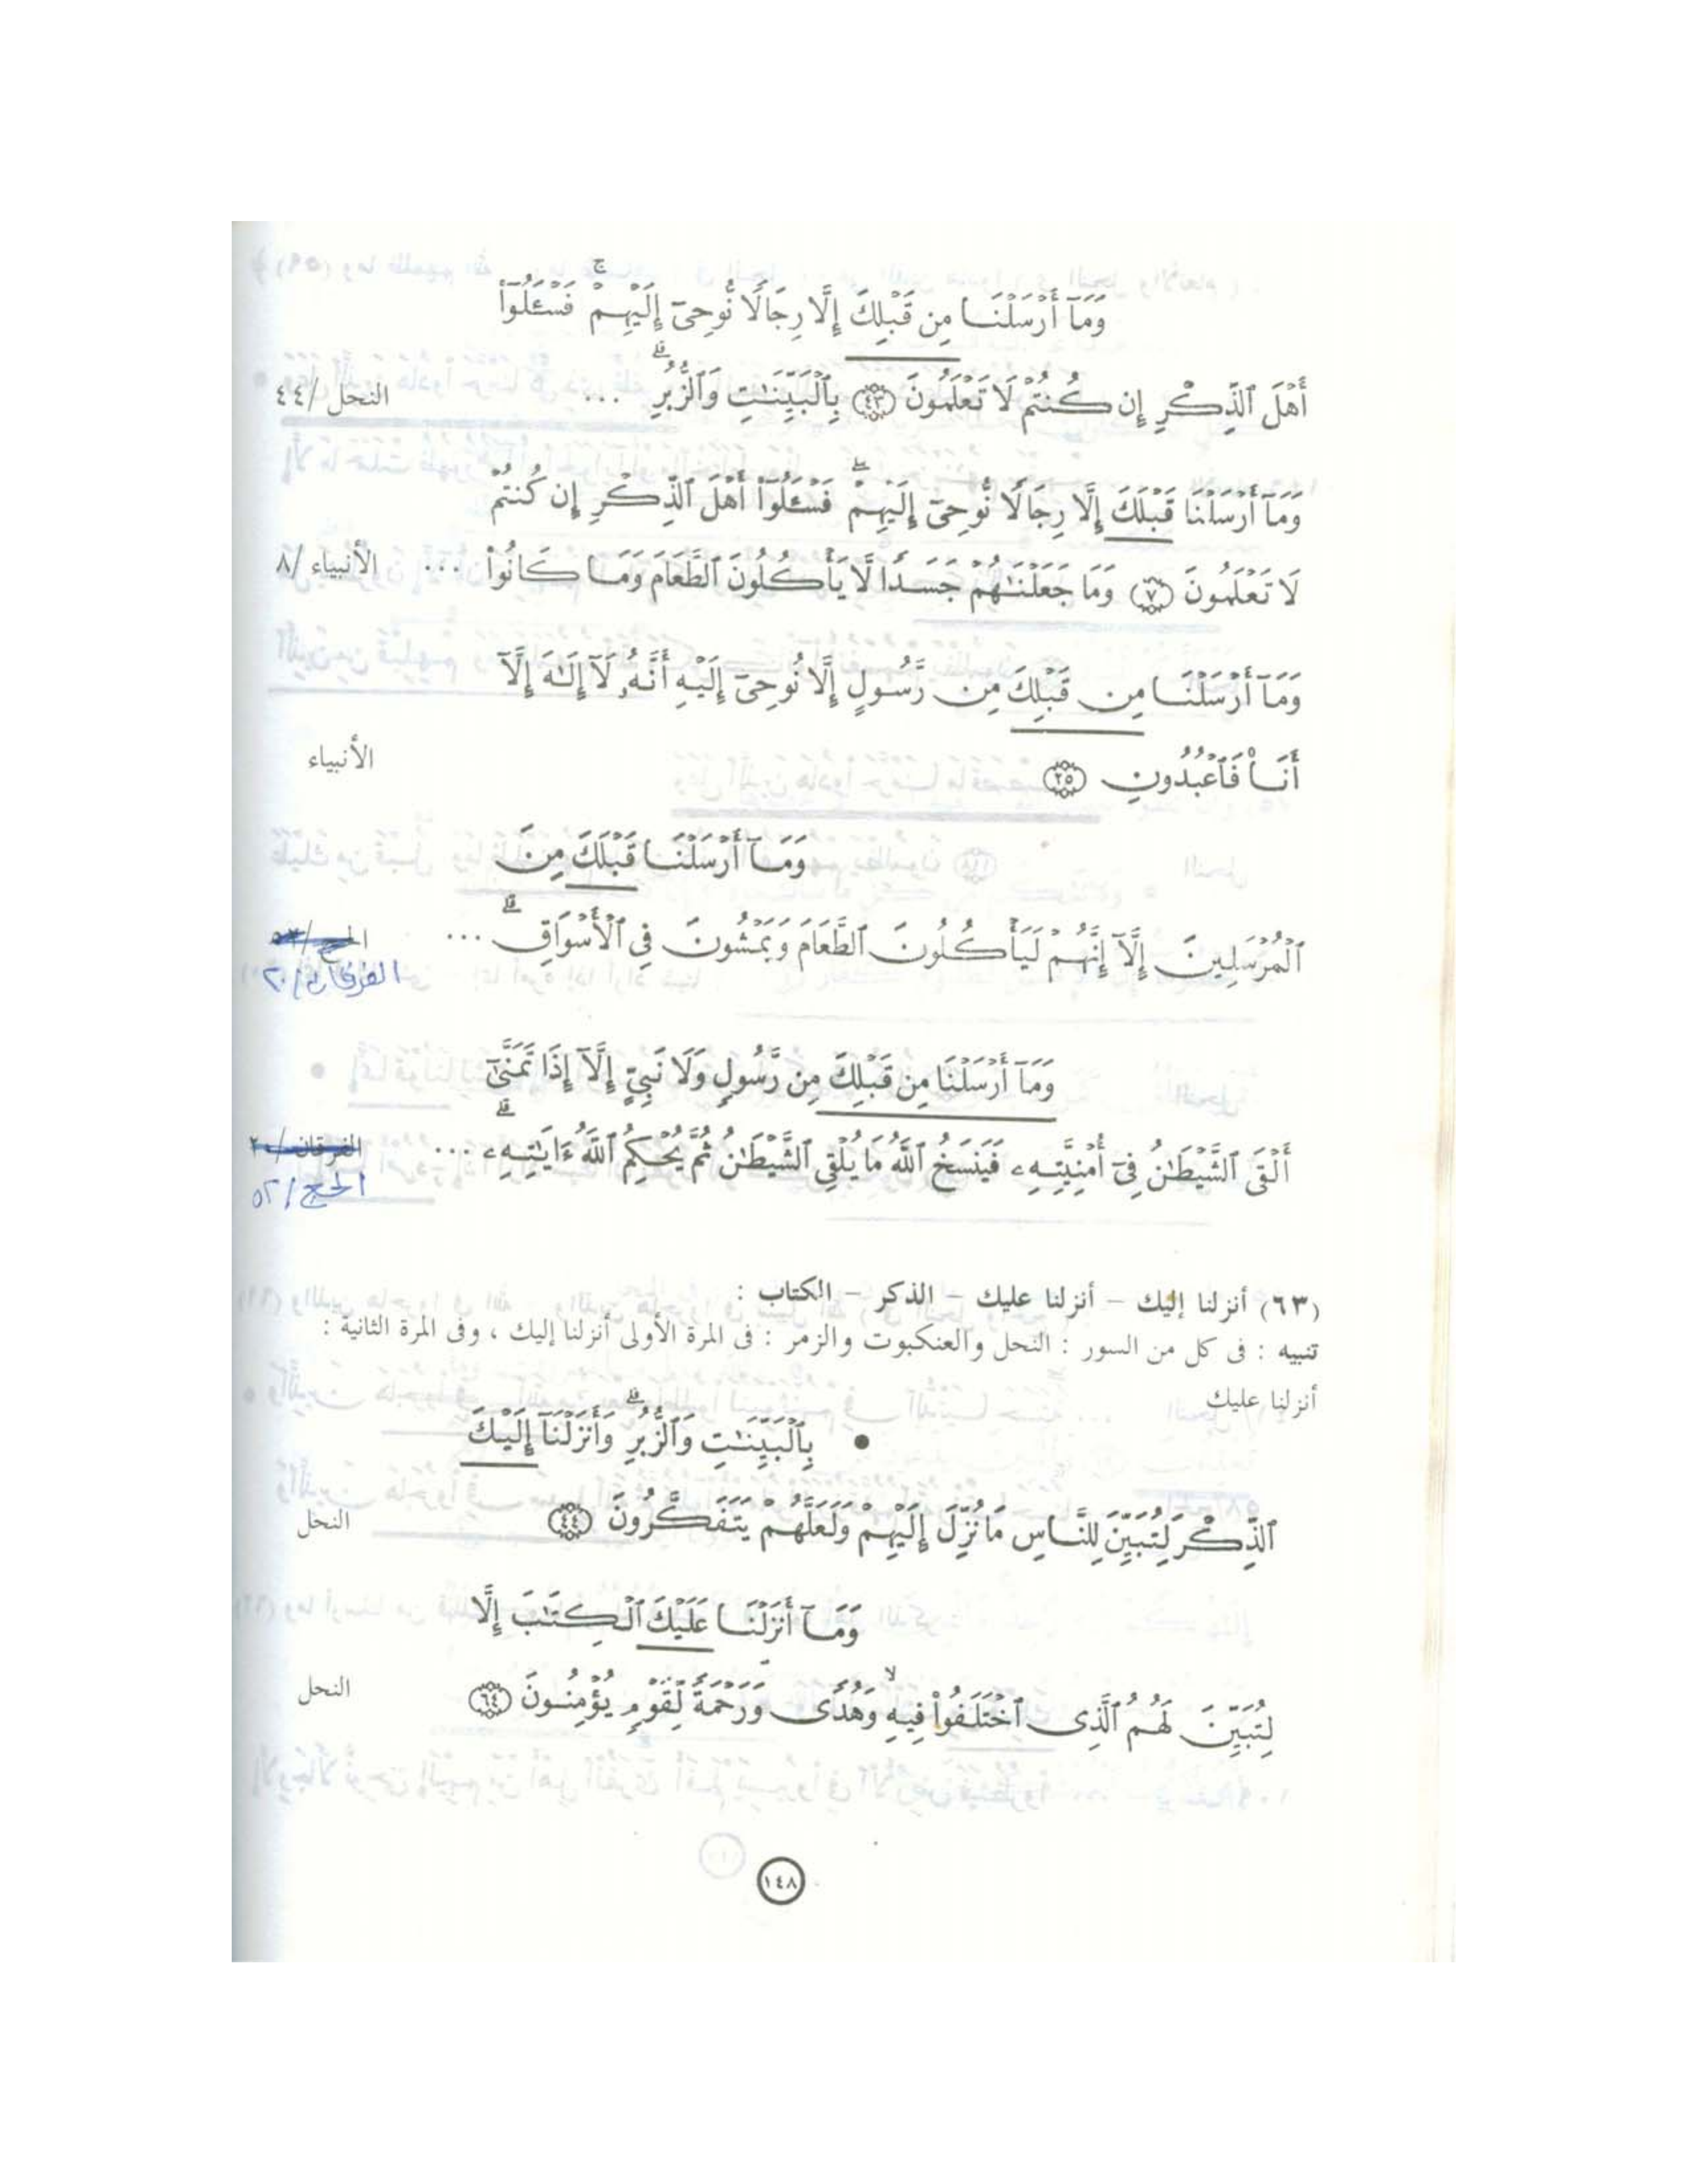 وَمَآ أَرْسَلْنَا مِن قَبْلِكَ إِلَّا رِجَالًا نُّوحِىٓ إِلَيْهِمْ ۚ فَسْـَٔلُوٓا۟
أَهْلَ ٱلذِّكْرِ إِن كُنتُمْ لَا تَعْلَمُونَ ﴿٤٣﴾ بِٱلْبَيِّنَـٰتِ وَٱلزُّبُرِ ۗ ... النحل /٤٤
وَمَآ أَرْسَلْنَا قَبْلَكَ إِلَّا رِجَالًا نُّوحِىٓ إِلَيْهِمْ ۖ فَسْـَٔلُوٓا۟ أَهْلَ ٱلذِّكْرِ إِن كُنتُمْ
لَا تَعْلَمُونَ ﴿٧﴾ وَمَا جَعَلْنَـٰهُمْ جَسَدًا لَّا يَأْكُلُونَ ٱلطَّعَامَ وَمَا كَانُوا۟ ... الأنبياء /٨
وَمَآ أَرْسَلْنَا مِن قَبْلِكَ مِن رَّسُولٍ إِلَّا نُوحِىٓ إِلَيْهِ أَنَّهُۥ لَآ إِلَـٰهَ إِلَّآ
أَنَا۠ فَٱعْبُدُونِ ﴿٢٥﴾ الأنبياء
وَمَآ أَرْسَلْنَا قَبْلَكَ مِنَ
ٱلْمُرْسَلِينَ إِلَّآ إِنَّهُمْ لَيَأْكُلُونَ ٱلطَّعَامَ وَيَمْشُونَ فِى ٱلْأَسْوَاقِ ۗ ... الحج /٥٢
الفرقان /٢٠
وَمَآ أَرْسَلْنَا مِن قَبْلِكَ مِن رَّسُولٍ وَلَا نَبِىٍّ إِلَّآ إِذَا تَمَنَّىٰٓ
أَلْقَى ٱلشَّيْطَـٰنُ فِىٓ أُمْنِيَّتِهِۦ فَيَنسَخُ ٱللَّهُ مَا يُلْقِى ٱلشَّيْطَـٰنُ ثُمَّ يُحْكِمُ ٱللَّهُ ءَايَـٰتِهِۦ ۗ ... الفرقان /٢٠
الحج /٥٢
(٦٣) أنزلنا إليك – أنزلنا عليك – الذكر – الكتاب :
تنبيه : فى كل من السور : النحل والعنكبوت والزمر : فى المرة الأولى أنزلنا إليك ، وفى المرة الثانية :
أنزلنا عليك
● بِٱلْبَيِّنَـٰتِ وَٱلزُّبُرِ ۗ وَأَنزَلْنَآ إِلَيْكَ
ٱلذِّكْرَ لِتُبَيِّنَ لِلنَّاسِ مَا نُزِّلَ إِلَيْهِمْ وَلَعَلَّهُمْ يَتَفَكَّرُونَ ﴿٤٤﴾ النحل
وَمَآ أَنزَلْنَا عَلَيْكَ ٱلْكِتَـٰبَ إِلَّا
لِتُبَيِّنَ لَهُمُ ٱلَّذِى ٱخْتَلَفُوا۟ فِيهِ ۙ وَهُدًى وَرَحْمَةً لِّقَوْمٍ يُؤْمِنُونَ ﴿٦٤﴾ النحل
١٤٨